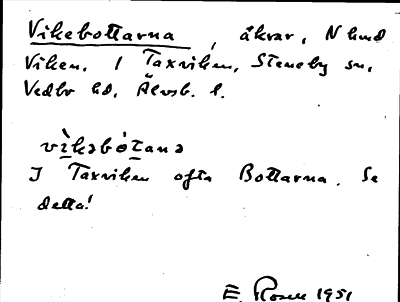 Vikebottarna, åkrar, N kend
Viken. I Taxviken, Steneby sn,
Vedbo hd, Älvsb. l.
vìkəbótana
I Taxviken ofta Bottarna. Se
detta!
E. Rosen 1951